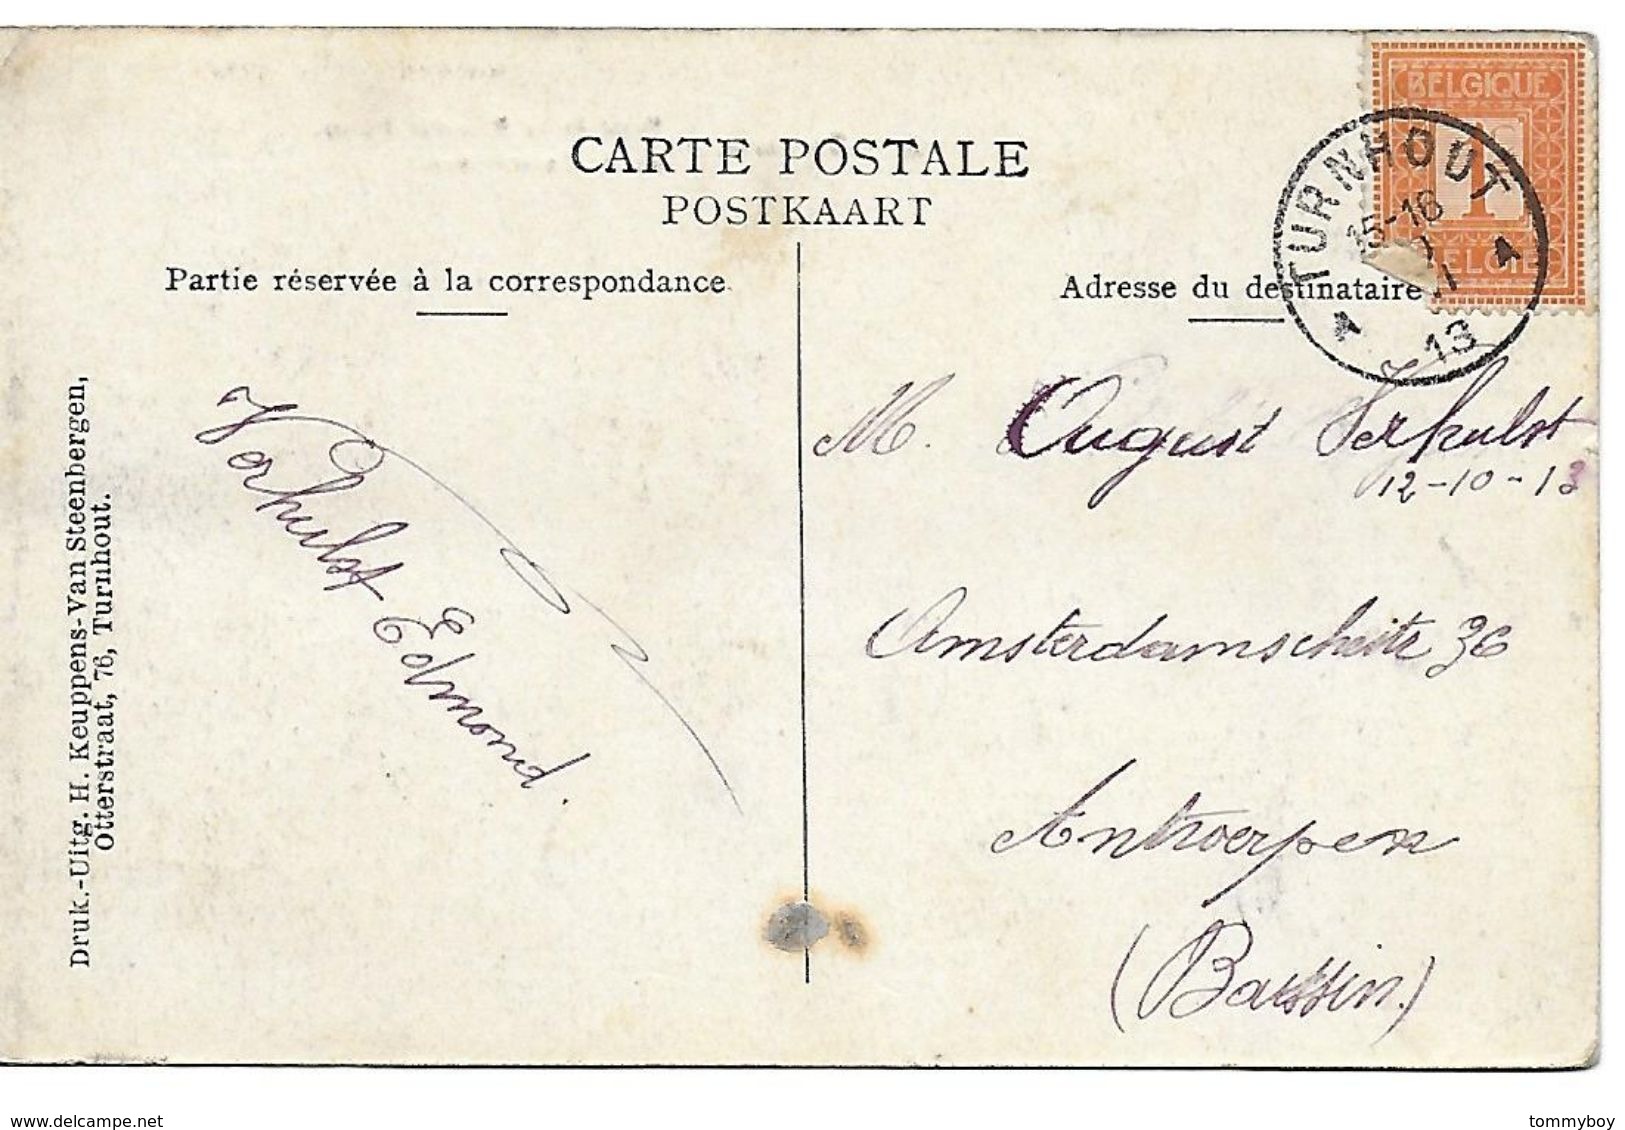 CARTE POSTALE
POSTKAART
Partie réservée à la correspondance
Adresse du destinataire
BELGIQUE
1
BELGIË
TURNHOUT
15-16
13
Druk.-Uitg. H. Keuppens-Van Steenbergen,
Otterstraat, 76, Turnhout.
Verhulst Edmond.
M. August Verhulst
12-10-13
Amsterdamscheitr 36
Antwerpen
(Bassin.)
delcampe.net
tommyboy